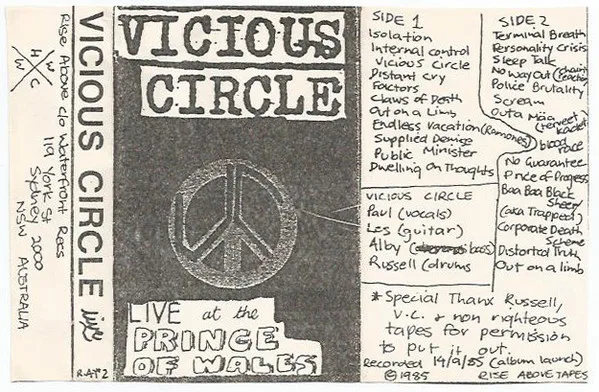 Rise Above c/o Waterfront Recs
119 York St
Sydney 2000
NSW AUSTRALIA
H/W
C
VICIOUS CIRCLE live
R.A.T 2
VICIOUS
CIRCLE
LIVE at the
PRINCE
OF WALES
SIDE 1
Isolation
Internal control
Vicious Circle
Distant cry
Factors
Claws of Death
Out on a Limb
Endless Vacation (Ramones)
Supplied Demise
Public Minister
Dwelling on Thoughts
VICIOUS CIRCLE
Paul (vocals)
Les (guitar)
Alby (bass)
Russell (drums
SIDE 2
Terminal Breath
Personality Crisis
Sleep Talk
No way Out (chain reaction)
Police Brutality
Scream
Outa
blood
race
No Guarantee
Price of Progress
Baa Baa Black
Sheep
(aka Trapped)
Corporate Death
Scheme
Distorted Truth
Out on a limb
*Special Thanx Russell,
V.C. & non righteous
tapes for permission
to put it out.
Recorded 19/9/85 (album launch)
©1985 RISE ABOVE TAPES